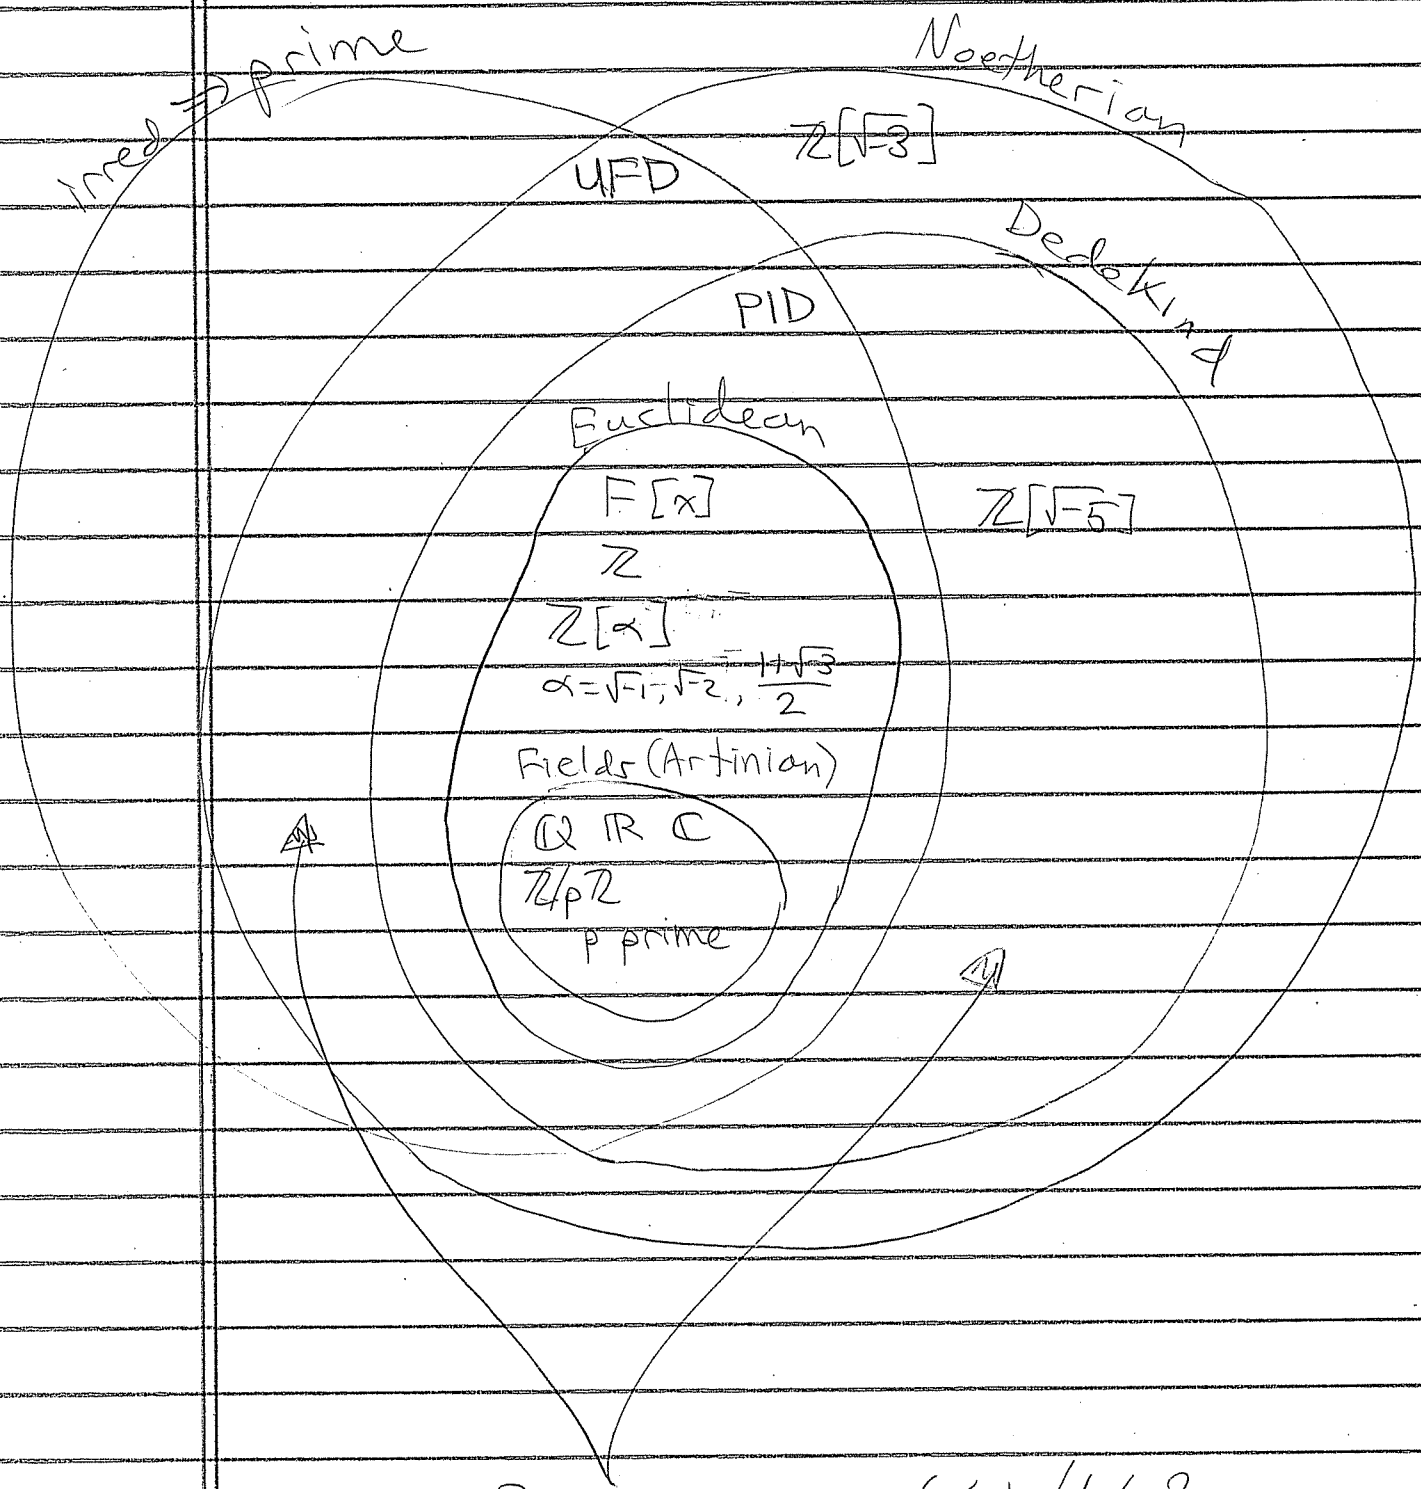 irred ⇒ prime
Noetherian
ℤ[√-3]
UFD
Dedekind
PID
Euclidean
F[x]
ℤ[√-5]
ℤ
ℤ[α]
α=√-1, √-2, 1+√-3/2
Fields (Artinian)
ℚ ℝ ℂ
ℤ/pℤ
p prime